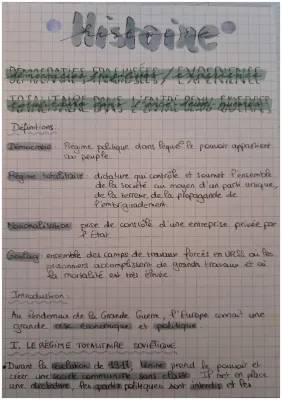 Histoire
DÉMOCRATIES FRAGILISÉES / EXPÉRIENCE
TOTALITAIRE DANS L'ENTRE DEUX GUERRES
Définitions
Démocratie : Régime politique dans lequel le pouvoir appartient
au peuple.
Régime totalitaire : dictature qui contrôle et soumet l'ensemble
de la société au moyen d'un parti unique,
de la terreur, de la propagande de
l'embrigadement.
Nationalisation : prise de contrôle d'une entreprise privée par
l'État.
Goulag : ensemble des camps de travaux forcés en URSS où les
prisonniers accomplissent de grands travaux et où
la mortalité est très élevée.
Introduction :
Au lendemain de la Grande Guerre, l'Europe connait une
grande crise économique et politique
I. LE RÉGIME TOTALITAIRE SOVIÉTIQUE.
Durant la révolution de 1917, Lénine prend le pouvoir et
créer une société communiste sans classe. Il met en place
une dictature, les partis politiques sont interdits et les